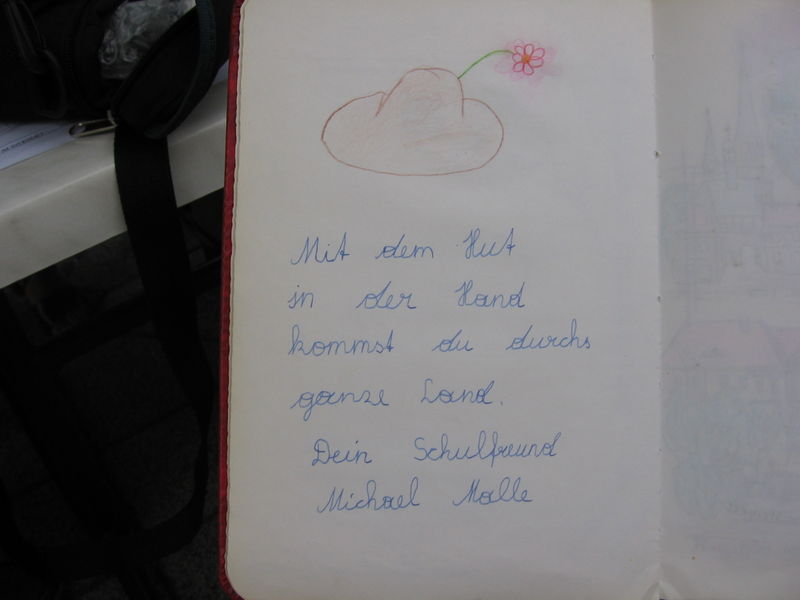 Mit dem Hut
in der Hand
kommst du durchs
ganze Land.
Dein Schulfreund
Michael Malle